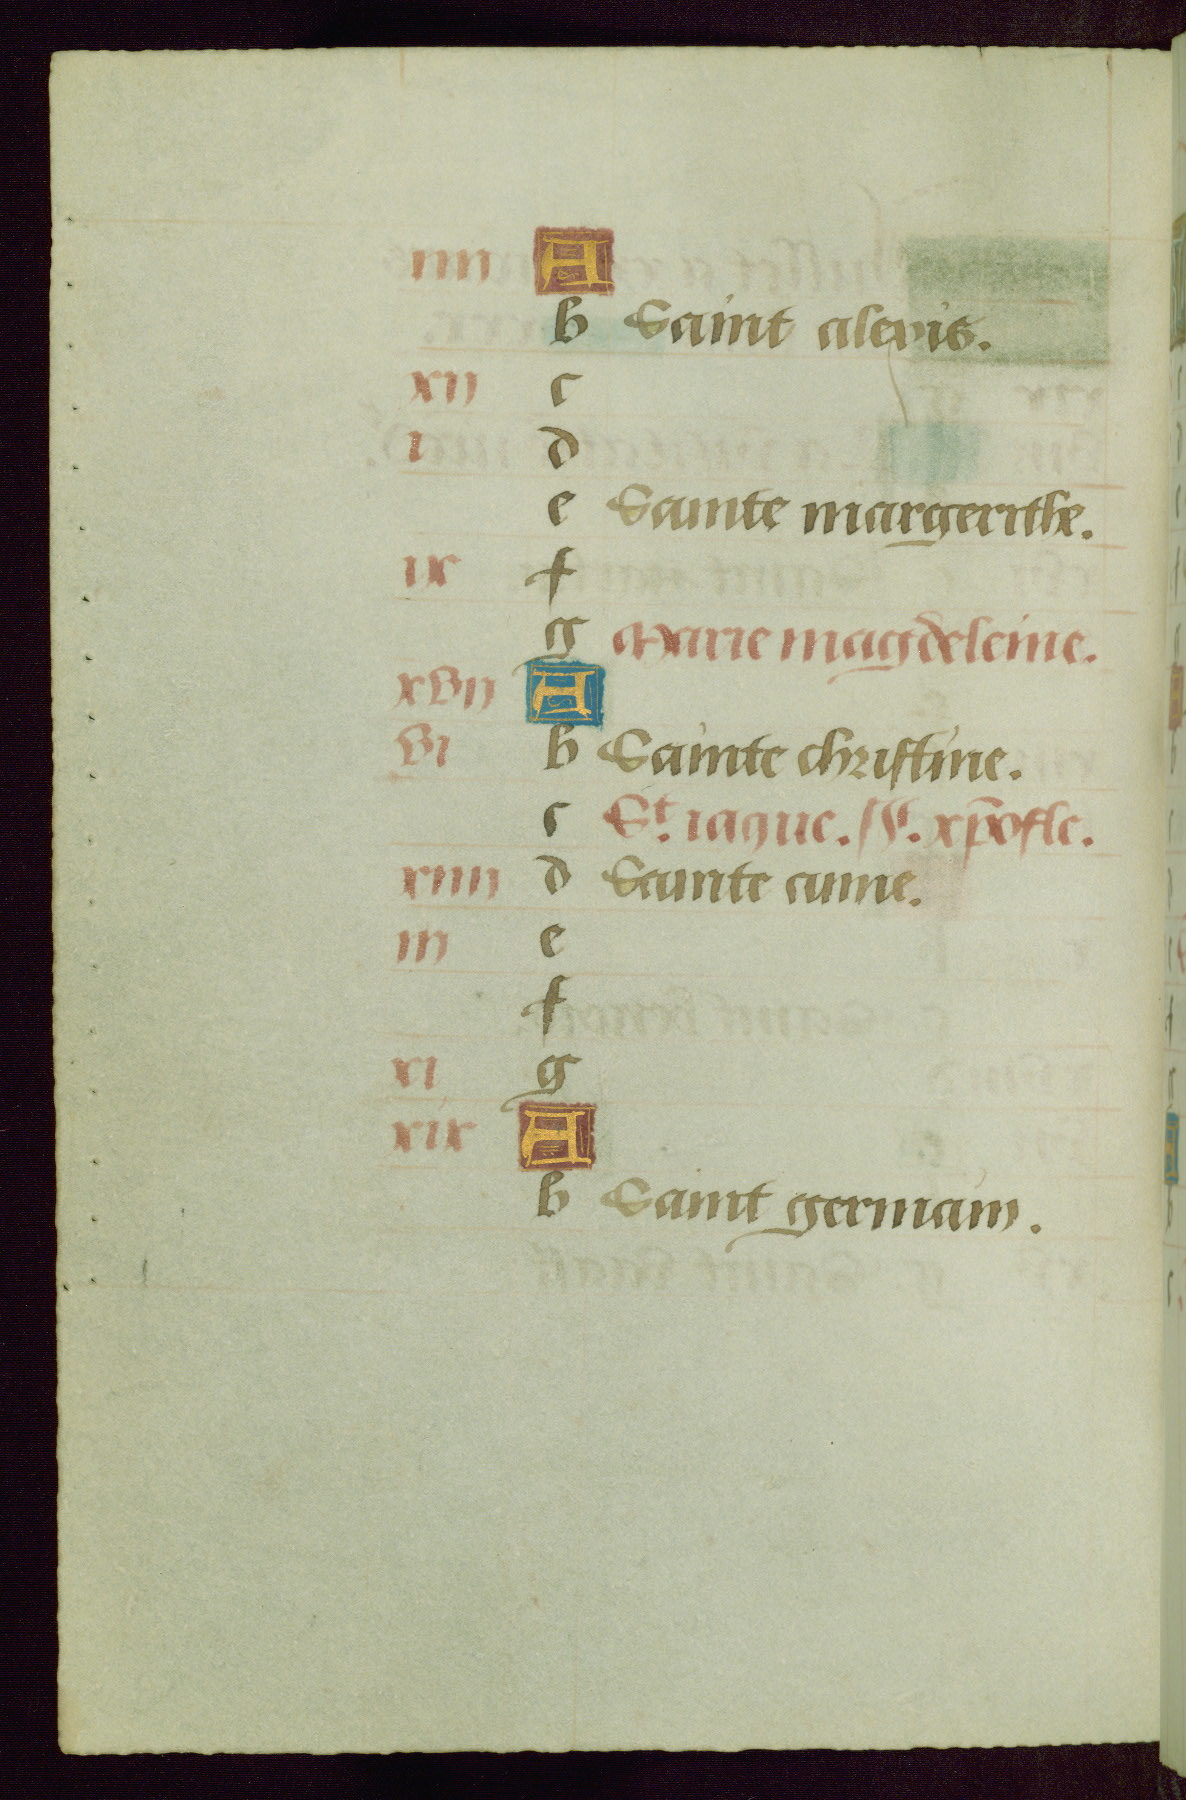 iiii A
b Saint alexis.
xii c
i d
e Sainte margerithe.
ix f
g Marie magdeleine.
xvii A
vi b Sainte christine.
c St. iaque. St. xpofle.
xiiii d Sainte anne.
iii e
f
xi g
xix A
b Saint germain.